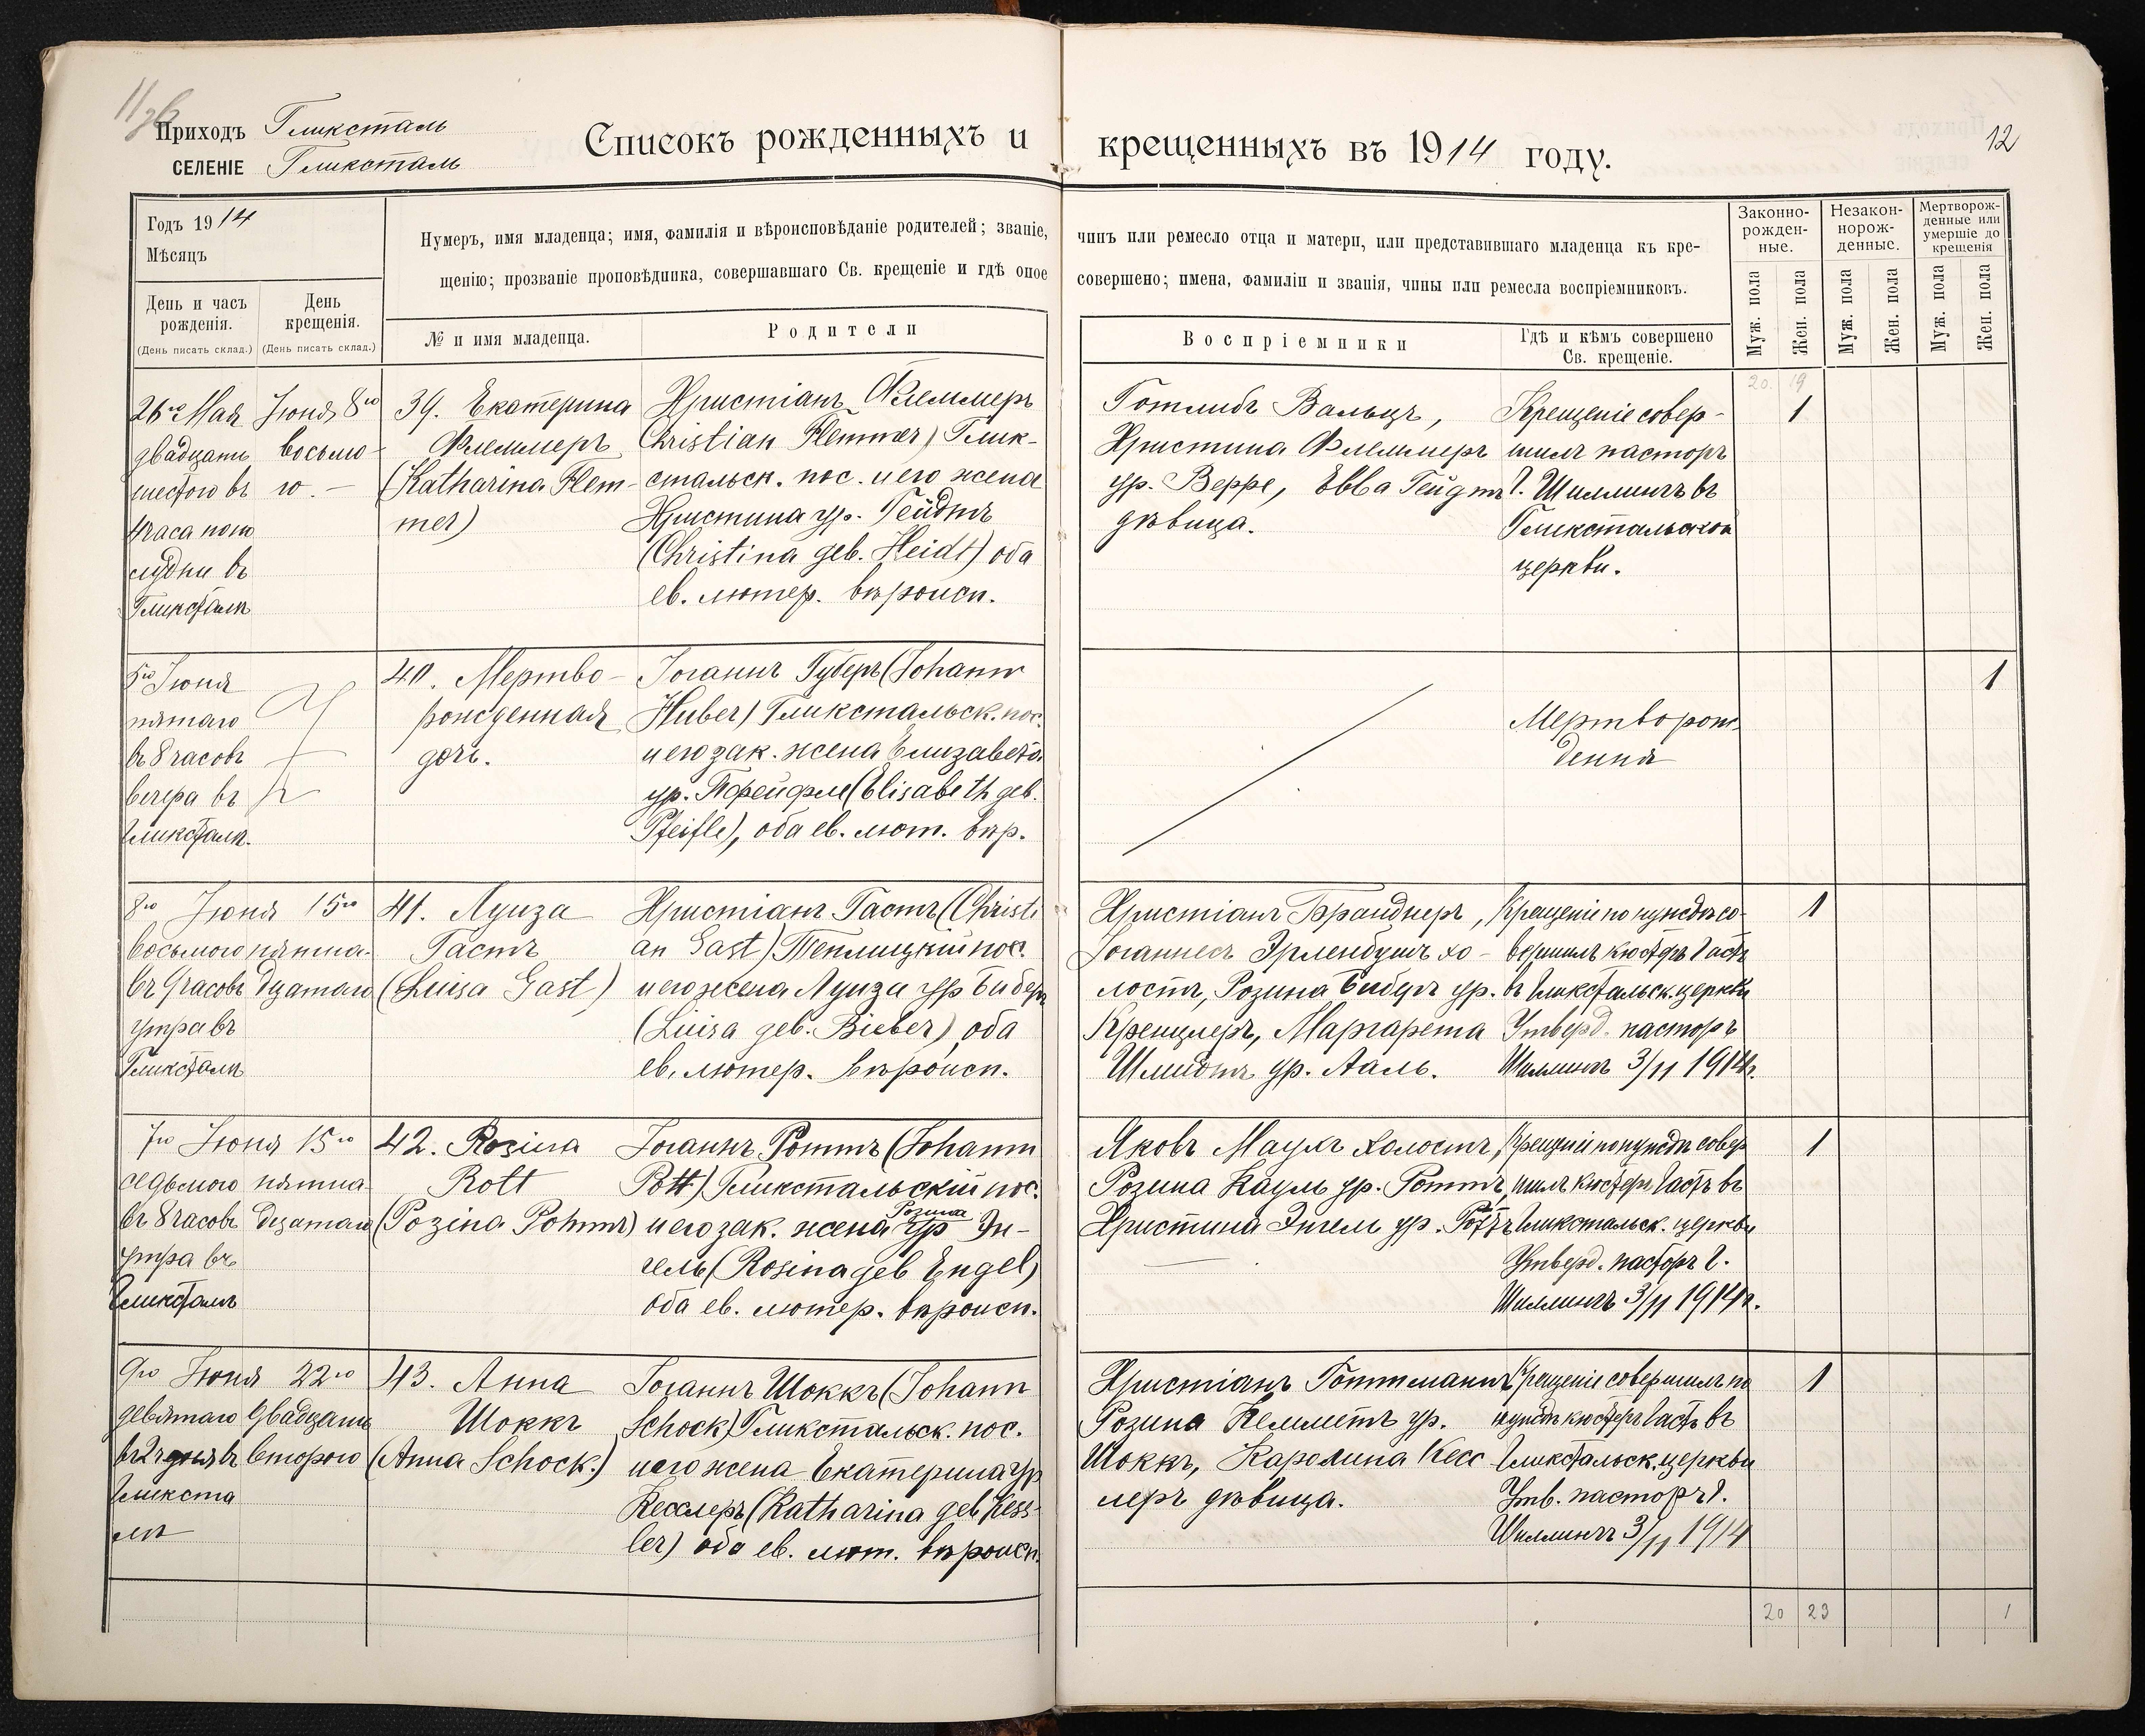 11 об
Приходъ Гликсталь
СЕЛЕНІЕ Гликсталь
Списокъ рожденныхъ и крещенныхъ въ 1914 году.
12
Годъ 1914
Мѣсяцъ
День и часъ рожденія.
(День писать склад.)
День крещенія.
(День писать склад.)
Нумеръ, имя младенца; имя, фамилія и вѣроисповѣданіе родителей; званіе, чинъ или ремесло отца и матери, или представившаго младенца къ кре-
щенію; прозваніе проповѣдника, совершавшаго Св. крещеніе и гдѣ оное совершено; имена, фамиліи и званія, чины или ремесла воспріемниковъ.
№ и имя младенца.
Родители
Воспріемники
Гдѣ и кѣмъ совершено
Св. крещеніе.
Законно-
рожден-
ные.
Незакон-
норож-
денные.
Мертворож-
денные или
умершіе до
крещенія
Муж. пола
Жен. пола
Муж. пола
Жен. пола
Муж. пола
Жен. пола
20. 19
26го Мая
двадцать
шестого въ
4 часа попо
лудни въ
Гликсталѣ
Іюня 8го
восьмо-
го. —
39. Екатерина
Флеммеръ
(Katharina Flem-
mer)
Христіанъ Флеммеръ
Christian Flemmer) Глик-
стальск. пос. и его жена
Христина ур. Гейдтъ
(Christina geb. Heidt) оба
ев. лютер. вѣроисп.
Готлибъ Вальцъ,
Христина Флеммеръ
ур. Верре, Евва Гейдтъ
дѣвица.
Крещеніе совер-
шилъ пасторъ
Г. Шиллингъ въ
Гликстальской
церкви.
1
5го Іюня
пятаго
въ 8 часовъ
вечера въ
Гликсталѣ.
40. Мертво-
рожденная
дочь.
Іоганнъ Губеръ (Johann
Huber) Гликстальск. пос.
и его зак. жена Елизавета
ур. Пфейфле (Elisabeth geb.
Pfeifle), оба ев. лют. вѣр.
Мертворож-
денная
1
8го Іюня
восьмого
въ 9 часовъ
утра въ
Гликсталѣ
15го
пятна-
дцатаго
41. Луиза
Гастъ
(Luisa Gast)
Христіанъ Гастъ (Christi
an Gast) Теплицкій пос.
и его жена Луиза ур Биберъ
(Luisa geb. Bieber) оба
ев. лютер. вѣроисп.
Христіанъ Бранднеръ,
Іоганнесъ Эрленбушъ хо-
лостъ, Розина Биберъ ур.
Кренцлеръ, Маргарета
Шмидтъ ур.Ааль.
Крещеніе по нуждѣ со-
вершилъ кюстеръ Гастъ
въ Гликстальск. церкви
Утверд. пасторъ
Шиллингъ 3/11 1914г.
1
7го Іюня
седьмого
въ 8 часовъ
утра въ
Гликсталѣ
15го
пятна-
дцатаго
42. Rosina
Rott
(Розина Роттъ)
Іоганнъ Роттъ (Johann
Rott) Гликстальскій пос.
и его зак. жена Розина ур Эн-
гель (Rosina geb Engel)
оба ев. лютер. вѣроисп.
Яковъ Маулъ холостъ,
Розина Кауль ур. Роттъ,
Христина Энгель ур. Роттъ
Крещеніе по нуждѣ совер
шилъ кюстеръ Гастъ въ
Гликстальск. церкви
Утверд. пасторъ Г.
Шиллингъ 3/11 1914г.
1
9го Іюня
девятаго
въ 2 ч дня въ
Гликста
лѣ
22го
двадцать
второго
43. Анна
Шоккъ
(Anna Schock.)
Іоганнъ Шоккъ (Johann
Schock) Гликстальск. пос.
и его жена Екатерина ур
Кесслеръ (Katharina geb Kess-
ler) оба ев. лют. вѣроисп.
Христіанъ Готтманъ,
Розина Кемлетъ ур.
Шоккъ, Каролина Кесс
леръ дѣвица.
Крещеніе совершилъ по
нуждѣ кюстеръ Гастъ въ
Гликстальск. церкви
Утв. пасторъ Г.
Шиллингъ 3/11 1914
1
20 23 1